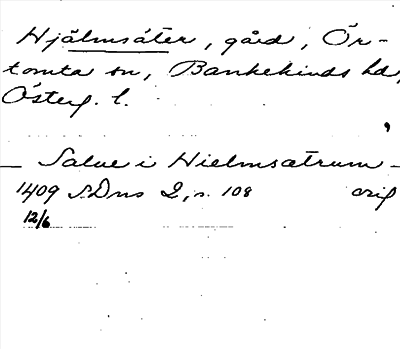 Hjälmsäter, gård, Ör-
tomta sn, Bankekinds hd,
Österg. l.
— Salue i Hielmsætrum —
1409 SDns 2, s. 108 orig
12/6